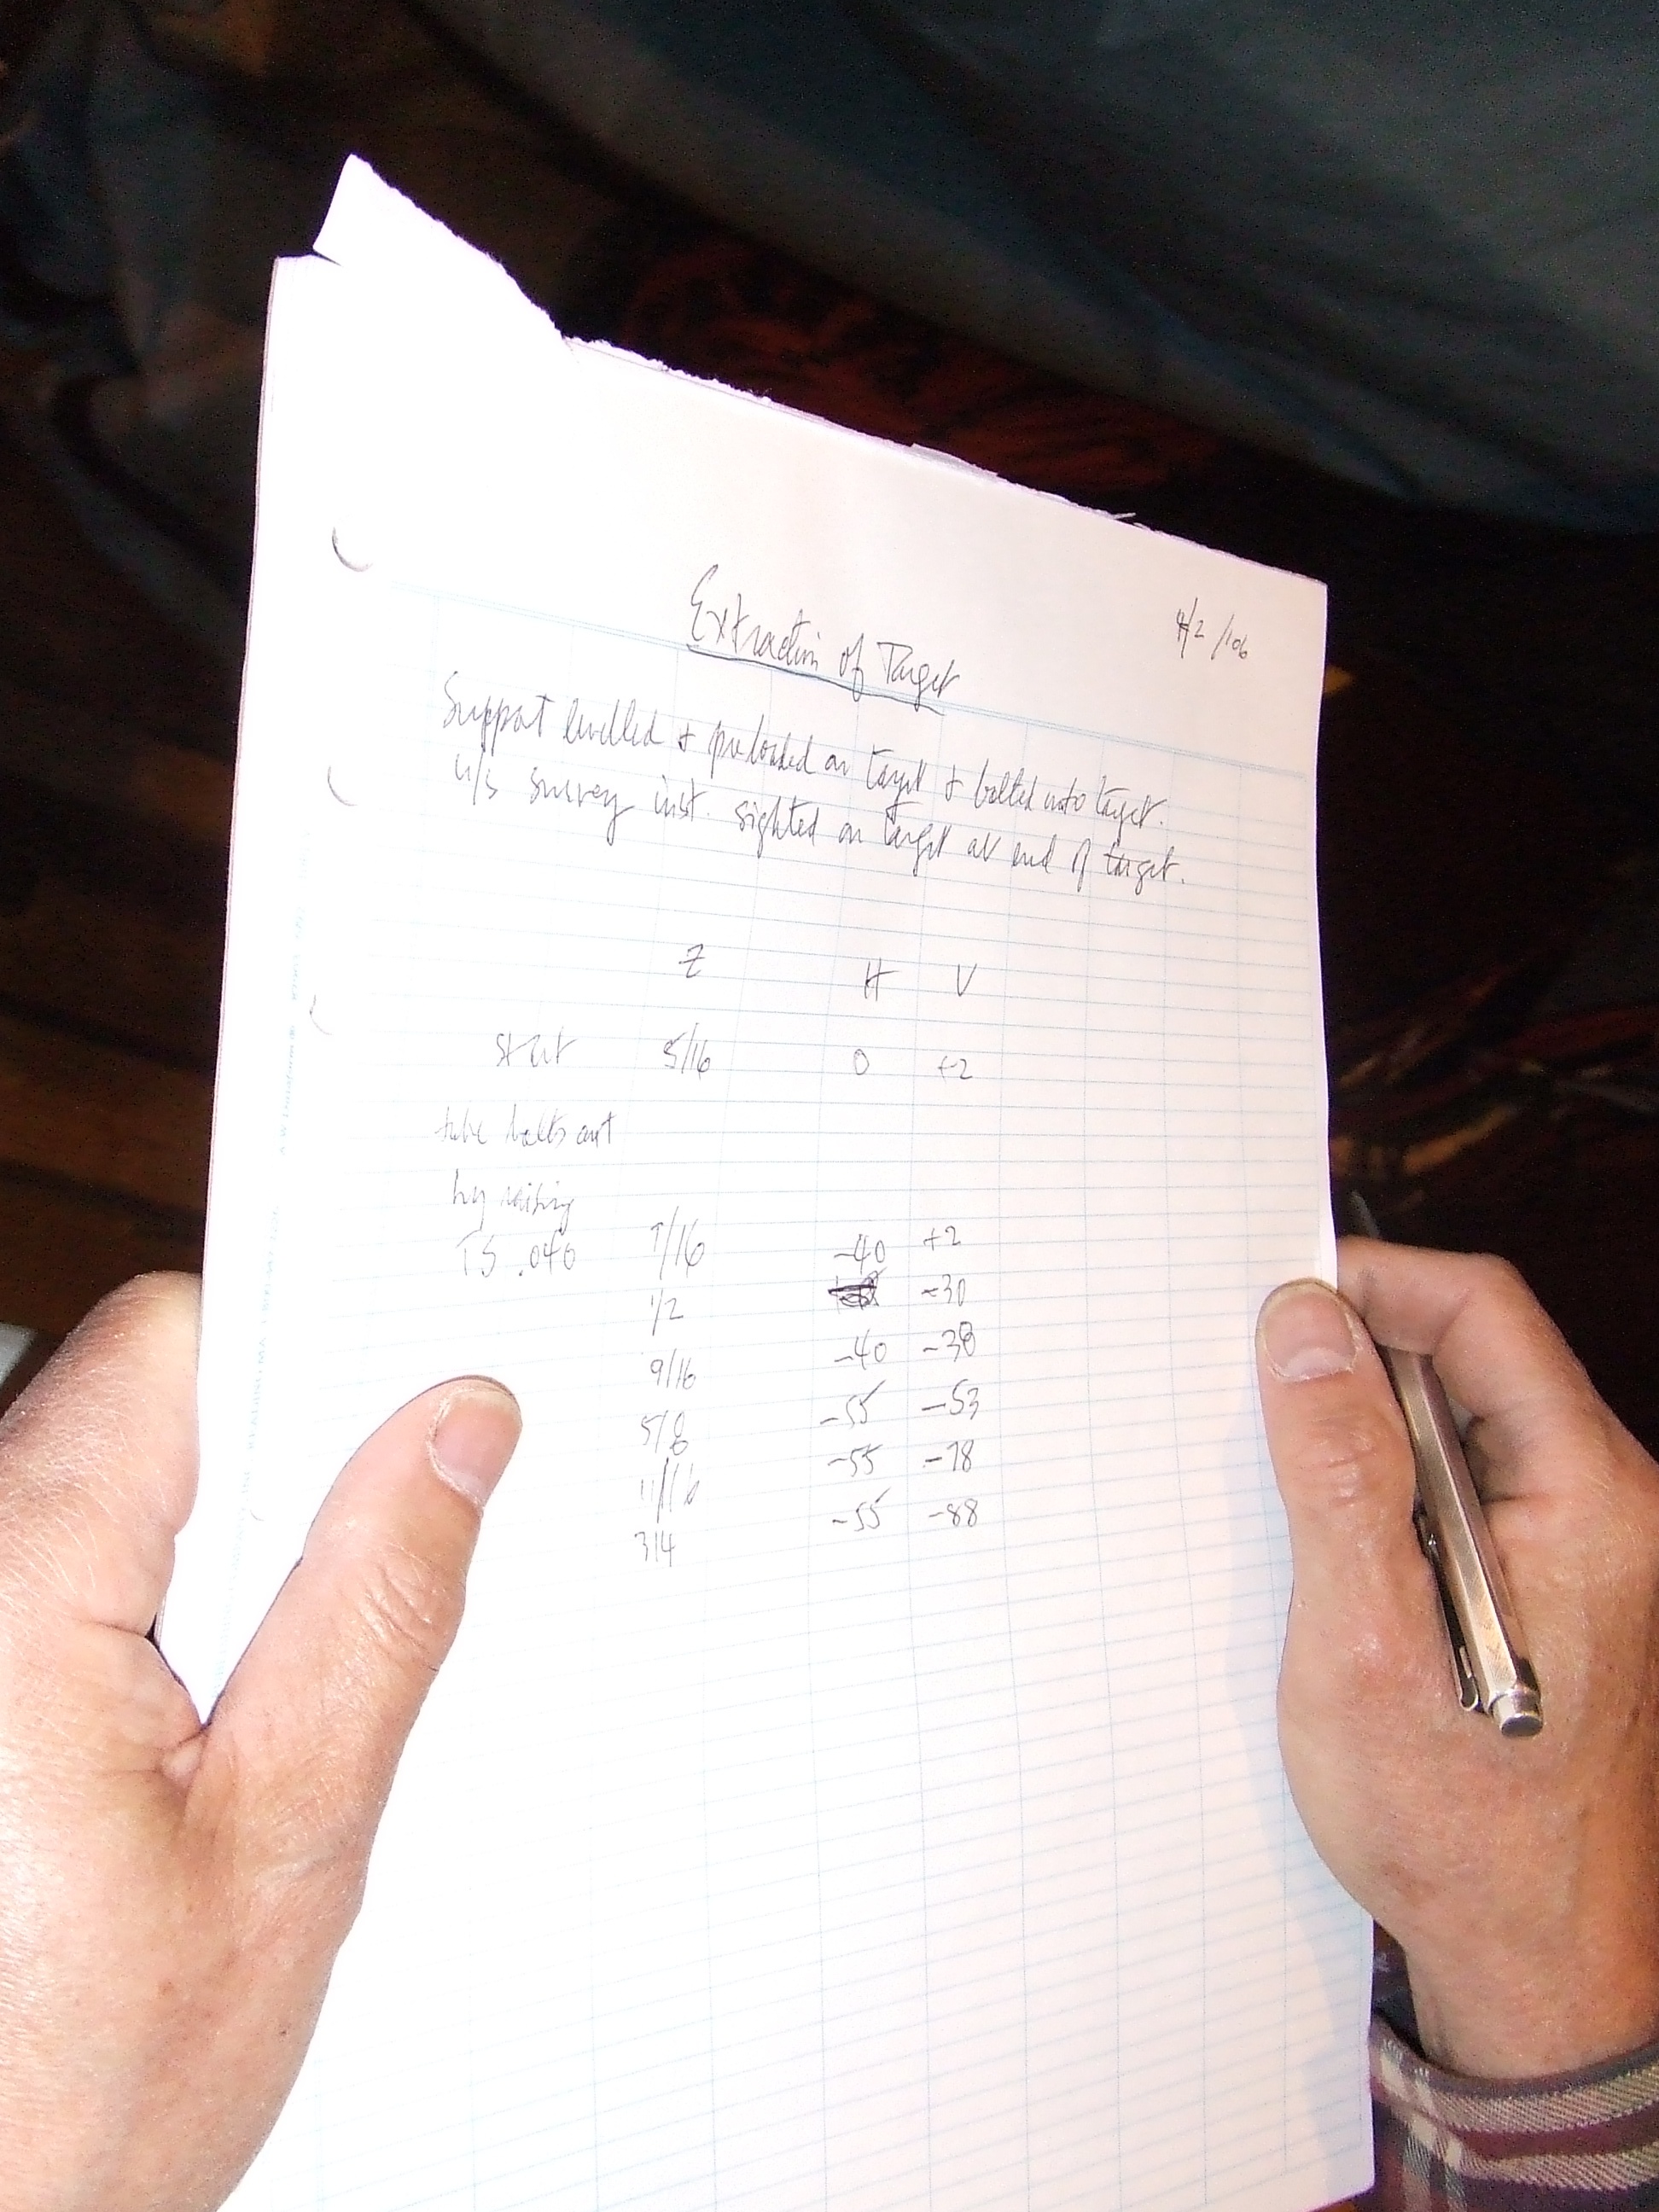 Extraction of Target
4/2/06
Support levelled & preloaded on target & bolted into target.
u/s survey inst. sighted on target at end of target.
Z H V
start 5/16 0 +2
tube bolts out
by raising
TS .040 7/16 -40 +2
1/2 -30
9/16 -40 -38
5/8 -55 -53
11/16 -55 -78
3/4 -55 -88